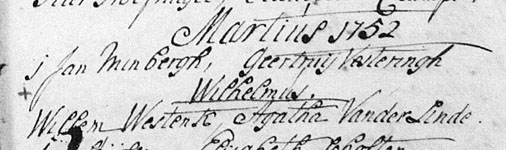 Martius 1752
j Jan Minbergh, Geertruij Vesteringh
Wilhelmus.
+
Willem Westenk, Agatha Vander Linde.
Elizabeth Scholten